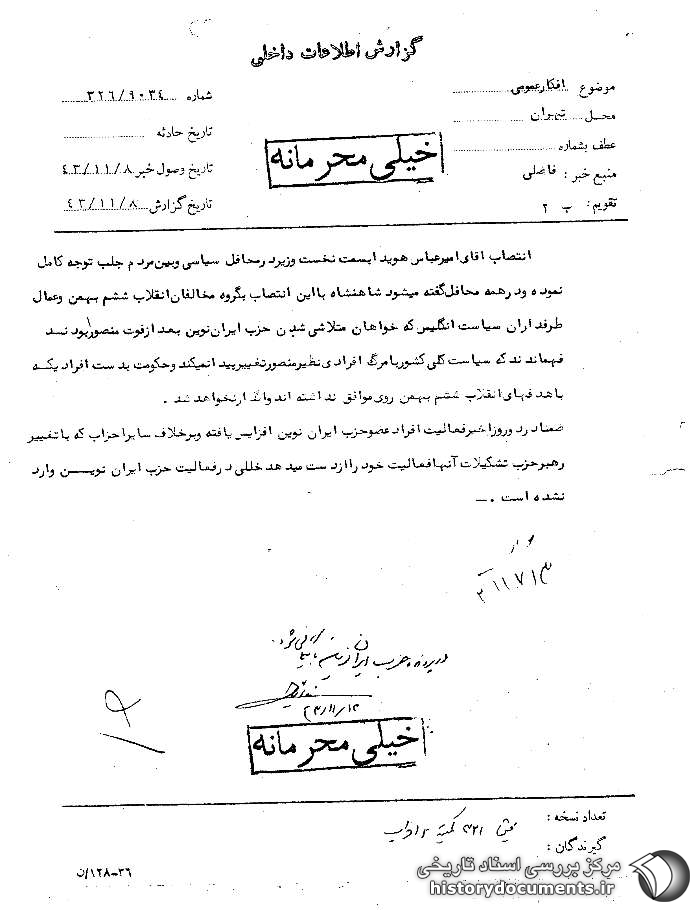 گزارش اطلاعات داخلی
موضوع افکار عمومی
محل تهران
عطف بشماره
منبع خبر : فاضلی
تقویم : ب ۲
شماره ۳۲۶/۹۰۳۴
تاریخ حادثه
تاریخ وصول خبر ۴۳/۱۱/۸
تاریخ گزارش ۴۳/۱۱/۸
خیلی محرمانه
انتصاب آقای امیرعباس هویدا بسمت نخست وزیر در محافل سیاسی و بین مردم جلب توجه کامل
نموده و در همه محافل گفته میشود شاهنشاه با این انتصاب بگروه مخالفان انقلاب ششم بهمن و عمال
طرفداران سیاست انگلیس که خواهان متلاشی شدن حزب ایران نوین بعد از فوت منصور بودند
فهماندند که سیاست کلی کشور با مرگ افرادی نظیر منصور تغییر پیدا نمیکند و حکومت بدست افرادیکه
با هدفهای انقلاب ششم بهمن روی موافق نداشته اند واگذار نخواهد شد .
ضمنا در دو روز اخیر فعالیت افراد عضو حزب ایران نوین افزایش یافته و برخلاف سایر احزاب که با تغییر
رهبر حزب تشکیلات آنها فعالیت خود را از دست میدهد خللی در فعالیت حزب ایران نویـــن وارد
نشده است .ـــ
در پرونده حزب ایران نوین
۴۳/۱۱/۱۲
خیلی محرمانه
تعداد نسخه :
گیرندگان :
بخش ۳۲۱
۳۶-۱۲۸/ن
مرکز بررسی اسناد تاریخی
historydocuments.ir